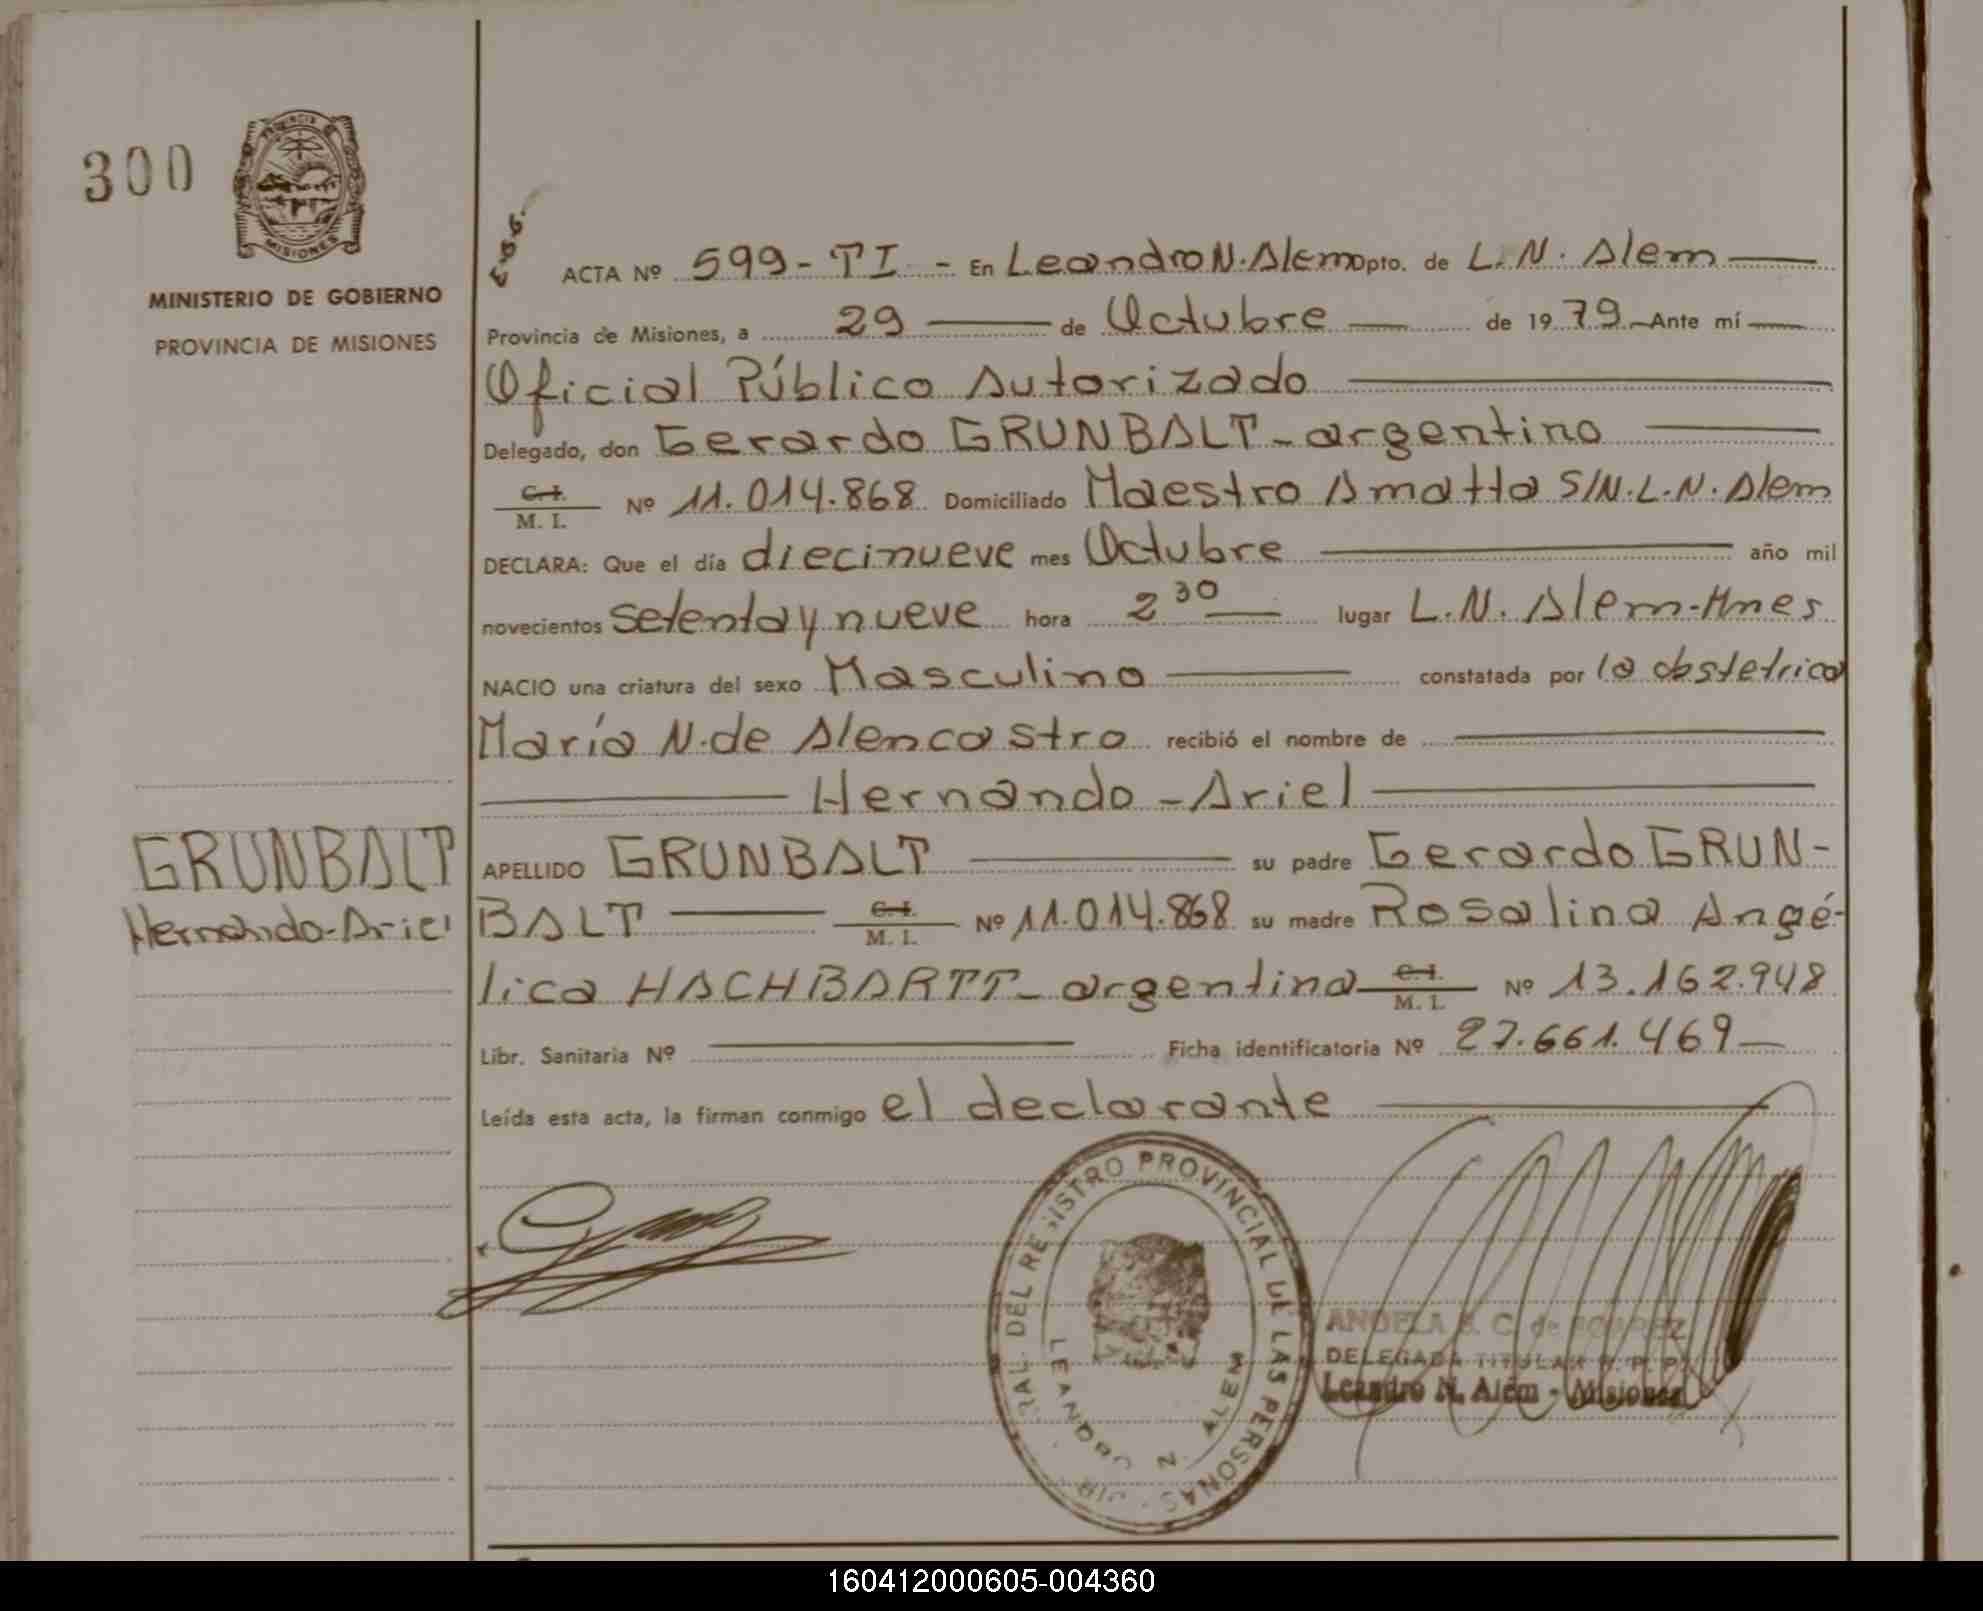 300
PROVINCIA DE
MISIONES
MINISTERIO DE GOBIERNO
PROVINCIA DE MISIONES
ACTA Nº 599-TI - En Leandro N. Alem Dpto. de L. N. Alem
Provincia de Misiones, a 29 de Octubre de 1979 - Ante mí
Oficial Público Autorizado
Delegado, don Gerardo GRUNBALT - argentino
C. I. / M. I. Nº 11.014.868 Domiciliado Maestro Amatta S/N. L. N. Alem
DECLARA: Que el día diecinueve mes Octubre año mil
novecientos setenta y nueve hora 2 30 lugar L. N. Alem - Mnes
NACIO una criatura del sexo Masculino constatada por la obstetrica
María N. de Alencastro recibió el nombre de
Hernando - Ariel
GRUNBALT
Hernando-Ariel
APELLIDO GRUNBALT su padre Gerardo GRUN-
BALT C. I. / M. I. Nº 11.014.868 su madre Rosalina Angé-
lica HACHBARTT - argentina C. I. / M. I. Nº 13.162.948
Libr. Sanitaria Nº Ficha identificatoria Nº 27.661.469
Leída esta acta, la firman conmigo el declarante
RAL DEL REGISTRO PROVINCIAL DE LAS PERSONAS - DIR
LEANDRO N. ALEM
ANGELA S. C. de
DELEGADA TITULAR R. P. P.
Leandro N. Alem - Misiones
160412000605-004360